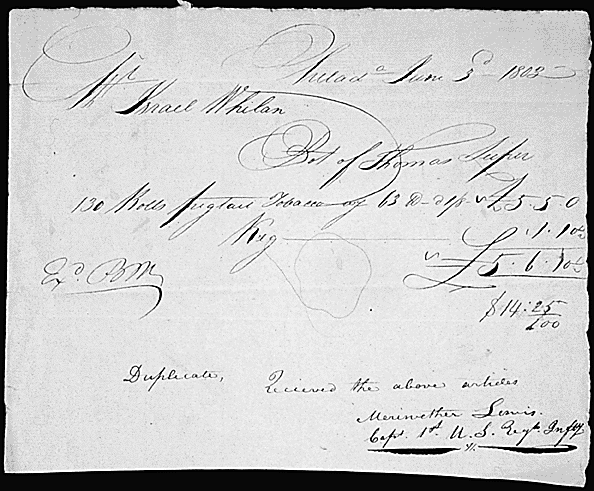 Philada June 3d 1803
Mr Israel Whelan
Bot of Thomas Leiper
130 Rolls pigtail Tobacco 63 lb £ 5 5 0
Keg 1. 10½
£ 5. 6. 10½
Exd.
$14: 25/100
Duplicate, Recieved the above articles
Meriwether Lewis.
Capt. 1st. U. S. Regt. Infty.